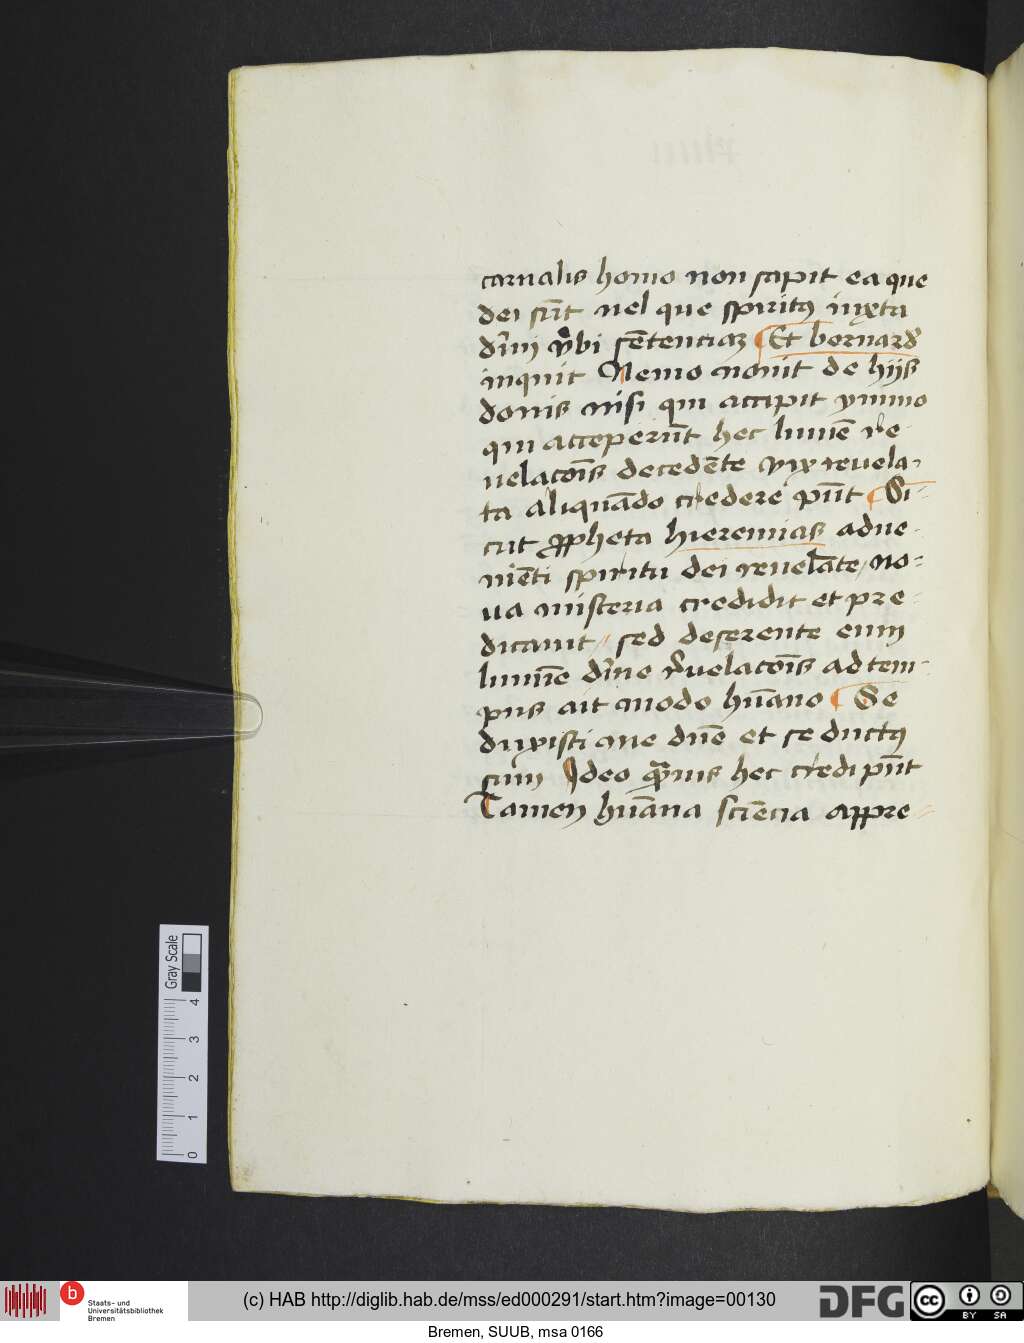 carnalis homo non sapit ea que
dei su̅t uel que spiritꝰ iuxta
du̅i u̅bi se̅tenciaꝫ Et bernard9
inquit Nemo nouit de hijs
donis nisi qui accipit ymmo
qui acceperu̅t hec lume̅ re
uelaco̅is decede̅te vix reuela-
ta aliqua̅do credere pn̅t Si-
cut ꝓpheta hieremias adue-
nie̅ti spiritu dei reuela̅te no-
ua misteria credidit et pre-
dicauit sed deserente eum
lumi̅e di̅ne reuelaco̅is ad tem-
pus ait modo hu̅ano Se
duxisti me dn̅e et seductꝰ
sum Ideo qua̅uis hec credi pn̅t
Tamen hu̅ana scie̅cia appre-
Gray Scale
0 1 2 3 4
b Staats- und
Universitätsbibliothek
Bremen
(c) HAB http://diglib.hab.de/mss/ed000291/start.htm?image=00130
DFG
cc BY SA
Bremen, SUUB, msa 0166